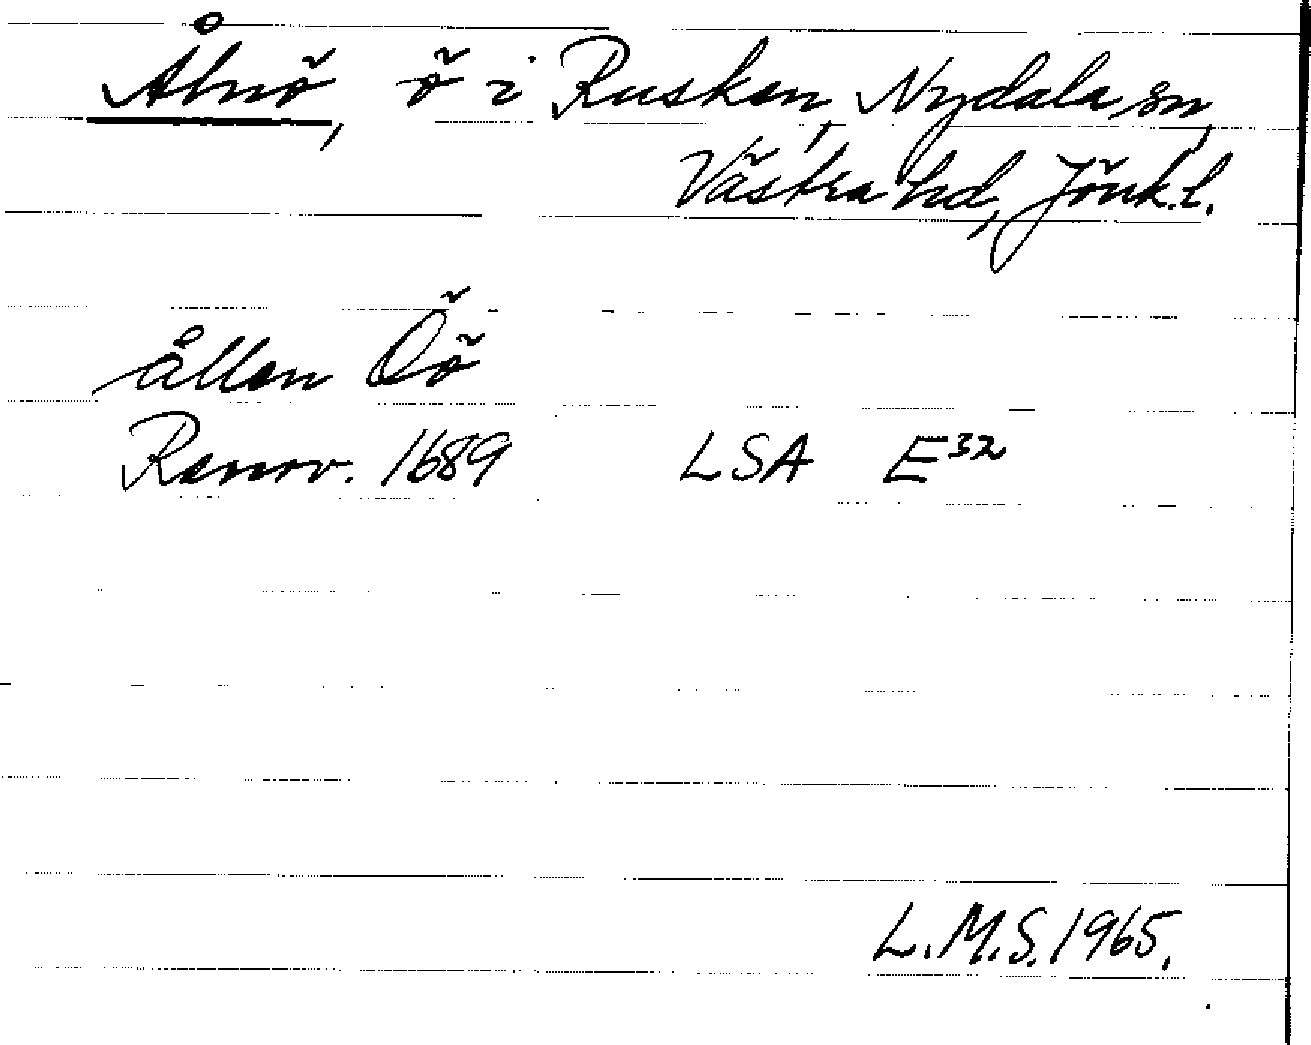 Ålnö, ö i Rusken, Nydala sn,
Västra hd, Jönk.l.
Ållen Öö
Renov. 1689 LSA E32
L.M.S. 1965.